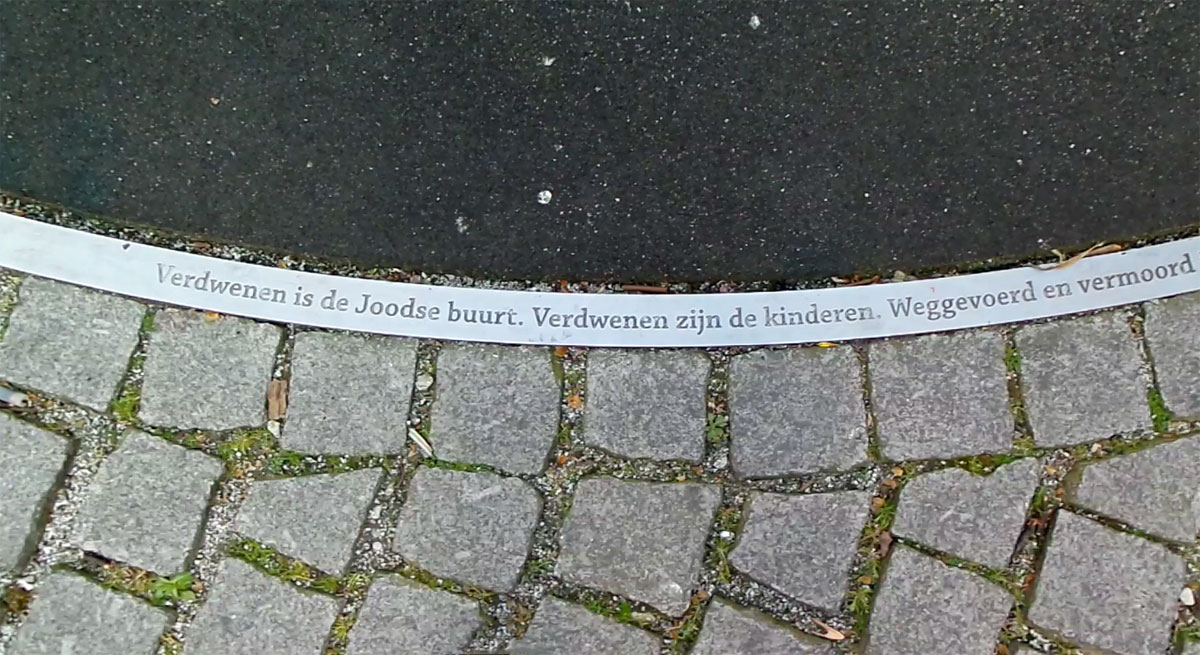 Verdwenen is de Joodse buurt. Verdwenen zijn de kinderen. Weggevoerd en vermoord